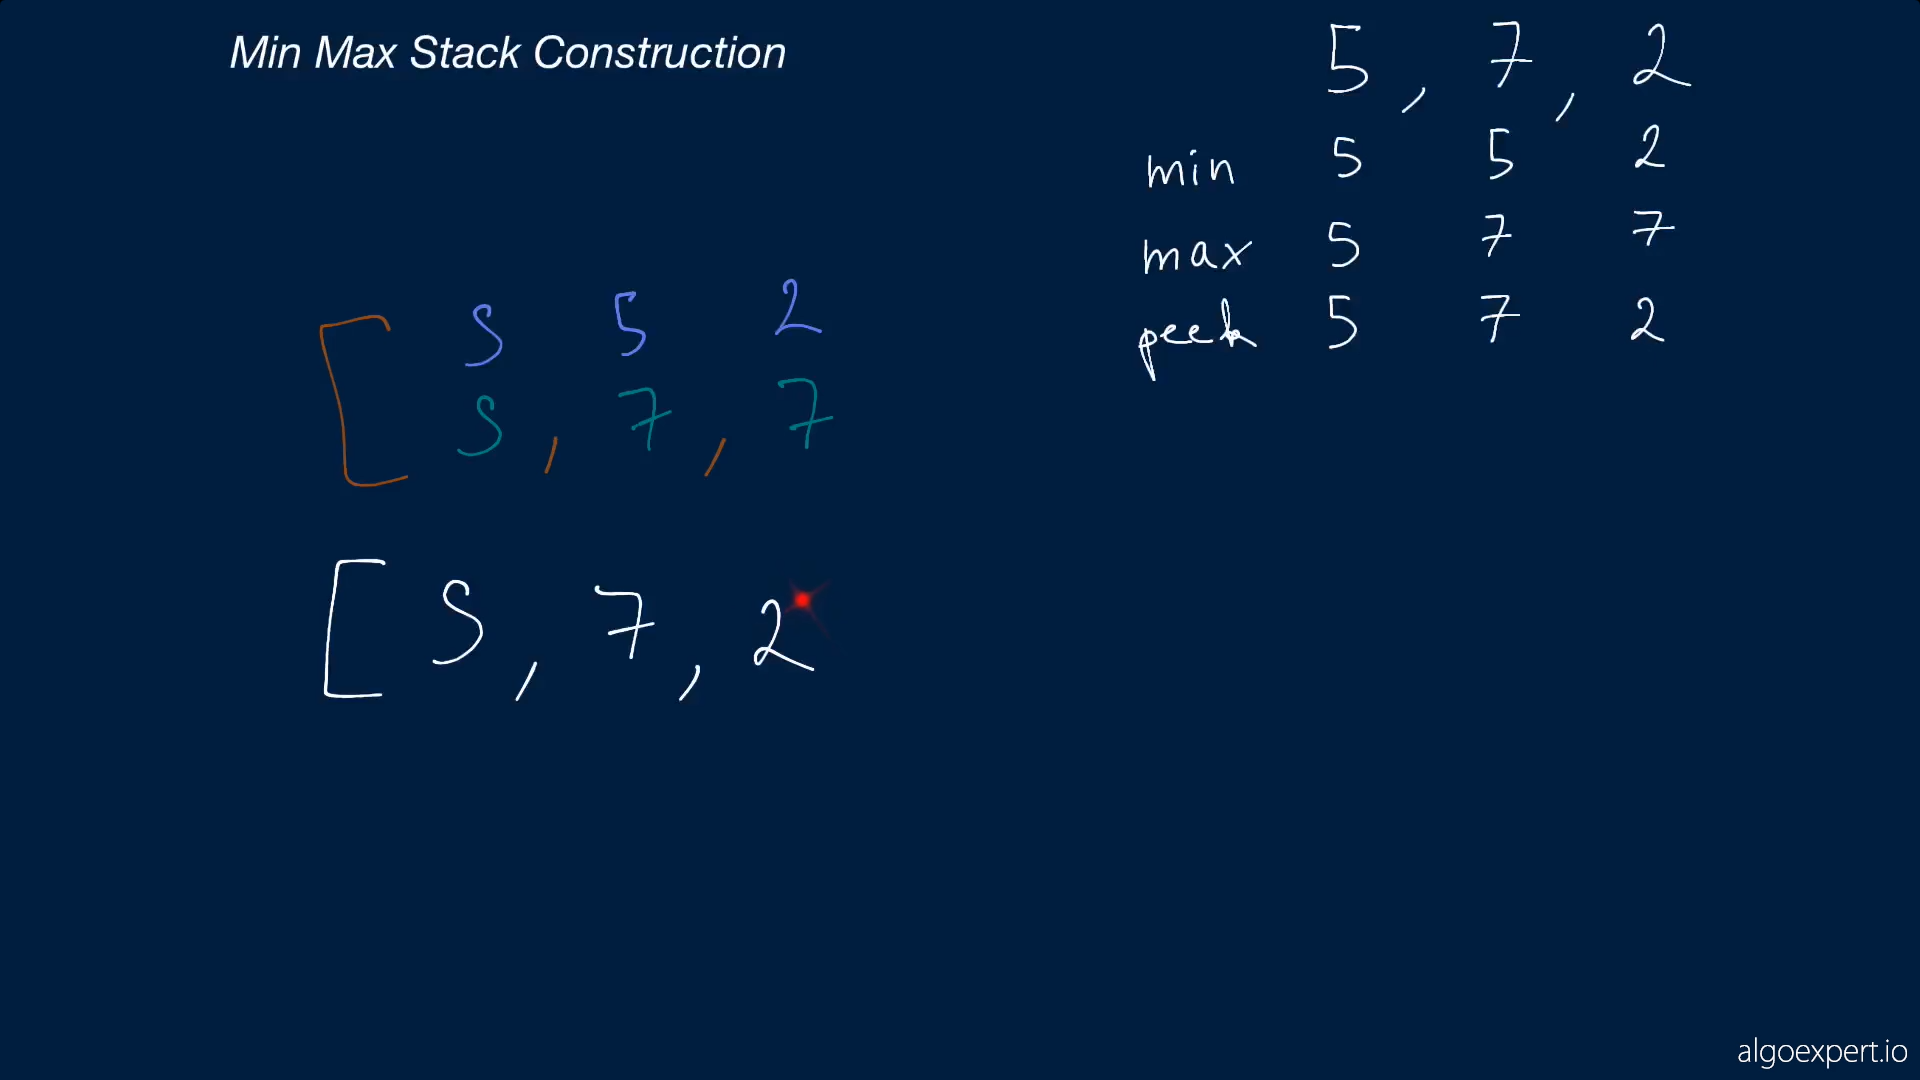 Min Max Stack Construction
5, 7, 2
min 5 5 2
max 5 7 7
peek 5 7 2
[ 5 5 2
5, 7, 7
[ 5, 7, 2
algoexpert.io